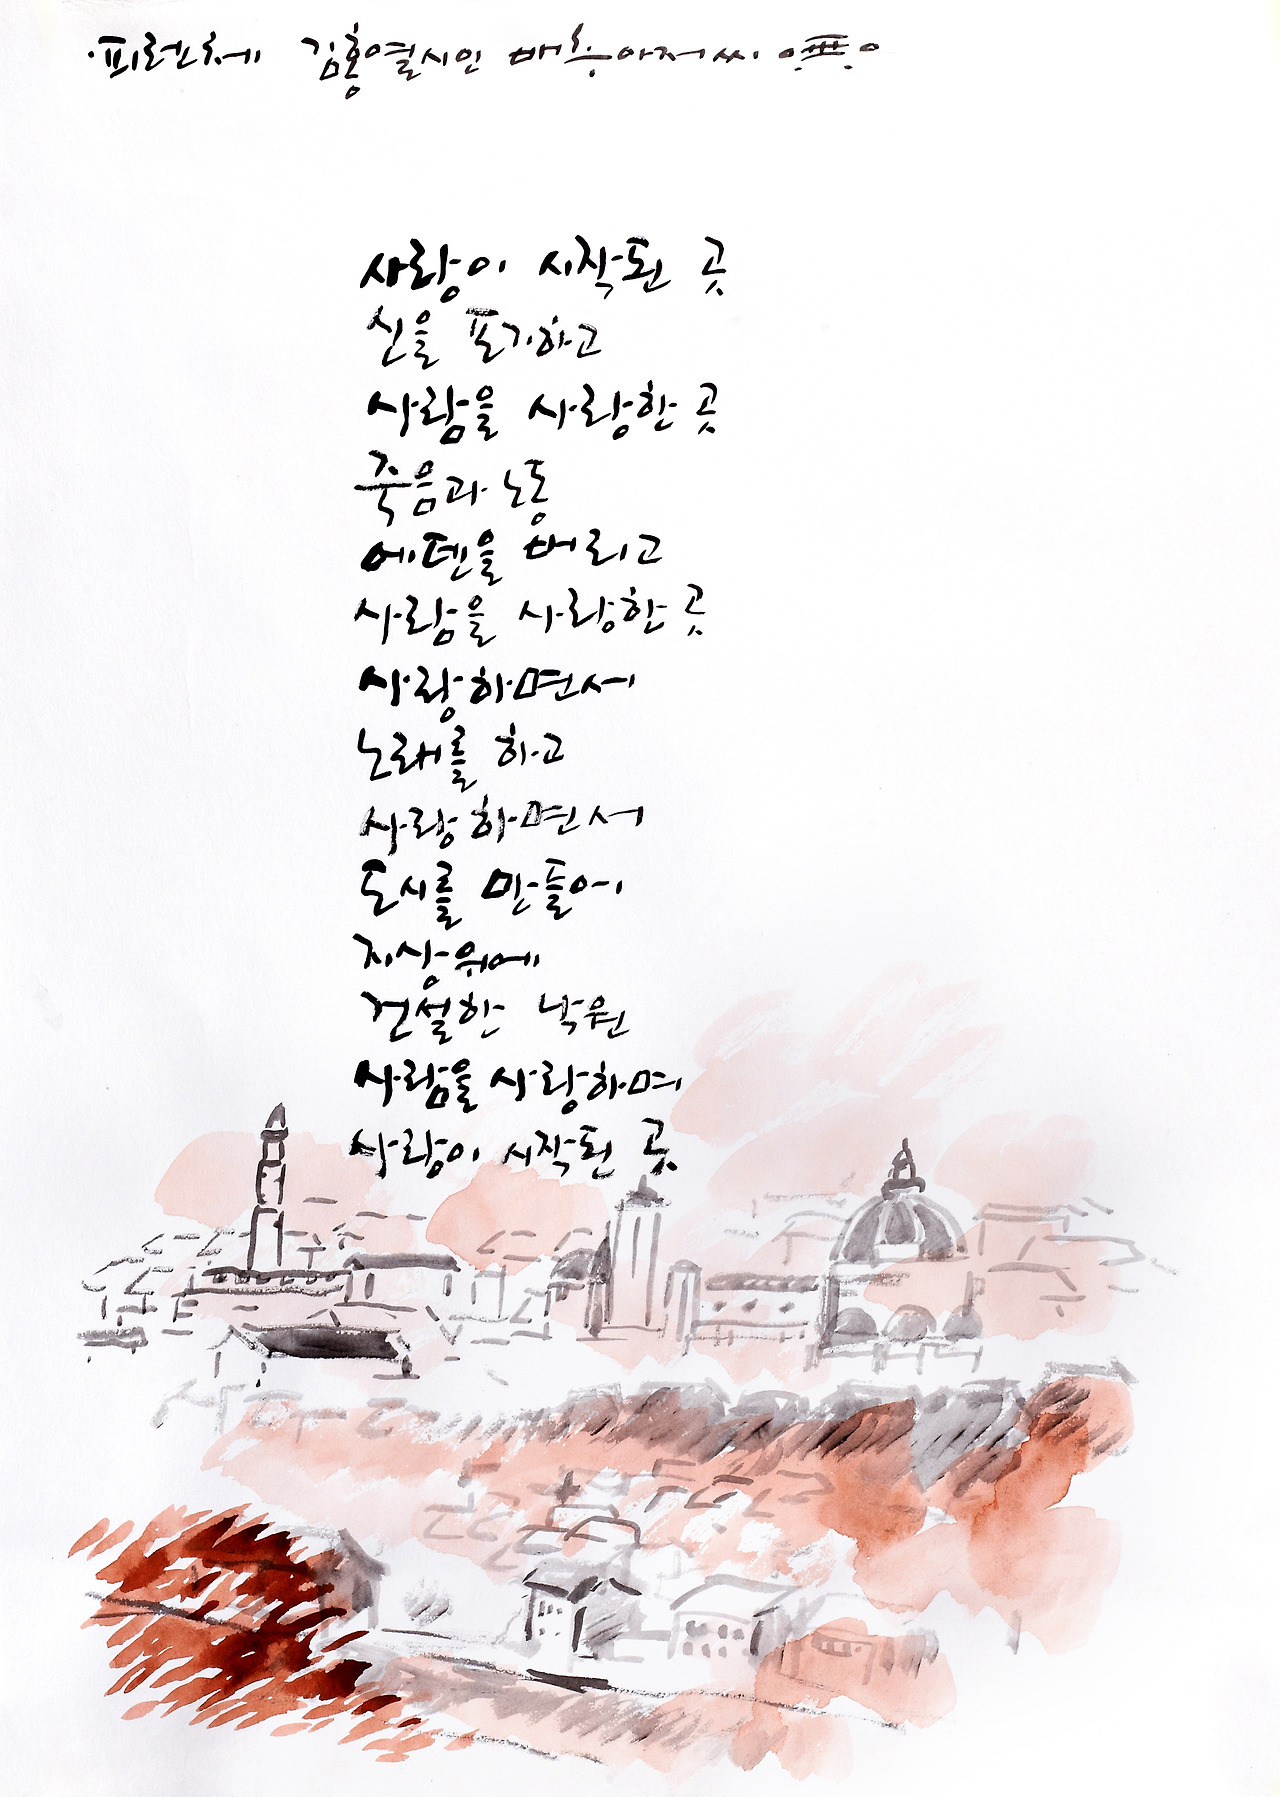 ·피렌체 김홍열시인 배추아저씨
사랑이 시작된 곳
신을 포기하고
사람을 사랑한 곳
죽음과 노동
에덴을 버리고
사람을 사랑한 곳
사랑하면서
노래를 하고
사랑하면서
도시를 만들어
지상위에
건설한 낙원
사람을 사랑하며
사랑이 시작된 곳